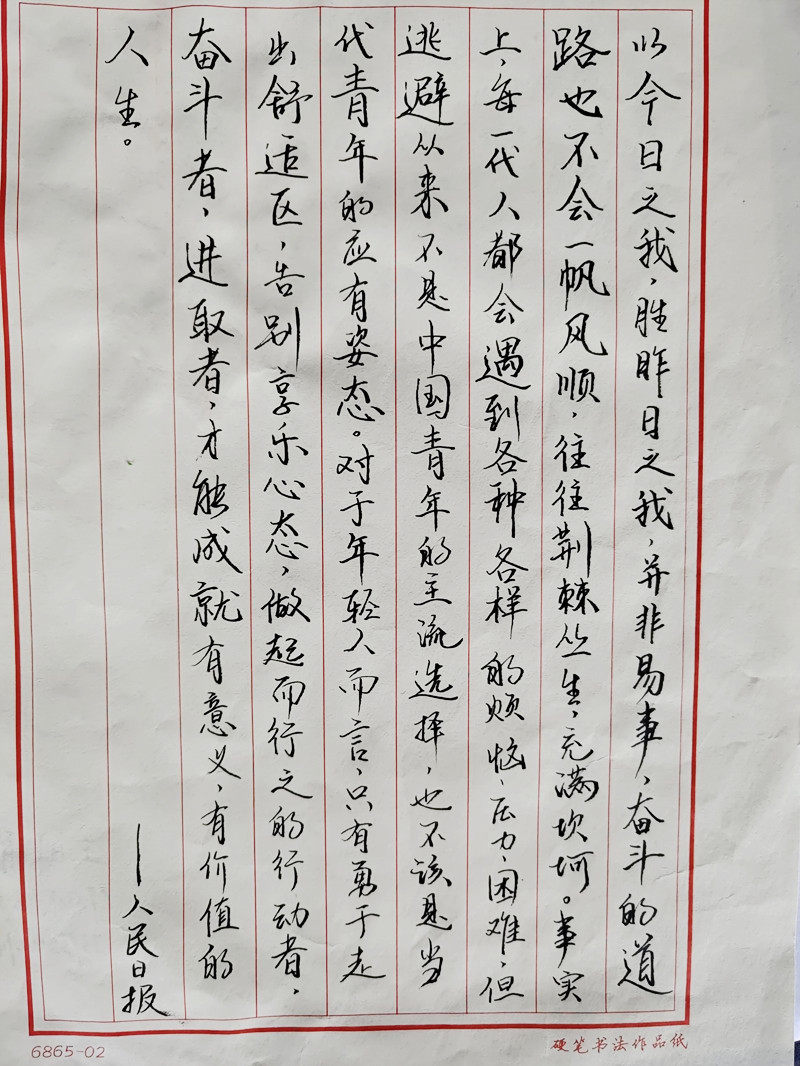 以今日之我，胜昨日之我，并非易事，奋斗的道
路也不会一帆风顺，往往荆棘丛生，充满坎坷。事实
上，每一代人都会遇到各种各样的烦恼、压力、困难，但
逃避从来不是中国青年的主流选择，也不该是当
代青年的应有姿态。对于年轻人而言，只有勇于走
出舒适区，告别享乐心态，做起而行之的行动者，
奋斗者，进取者，才能成就有意义，有价值的
人生。
—人民日报
6865-02
硬笔书法作品纸